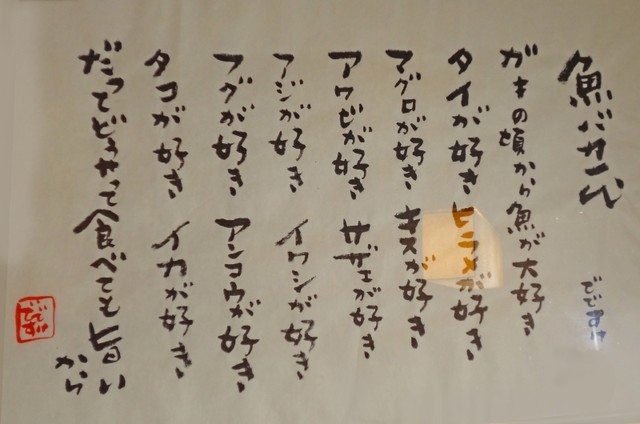 魚バカ一代
でですけ
ガキの頃から魚が大好き
タイが好き ヒラメが好き
マグロが好き キスが好き
アワビが好き サザエが好き
アジが好き イワシが好き
フグが好き アンコウが好き
タコが好き イカが好き
だってどうやって食べても旨い
から